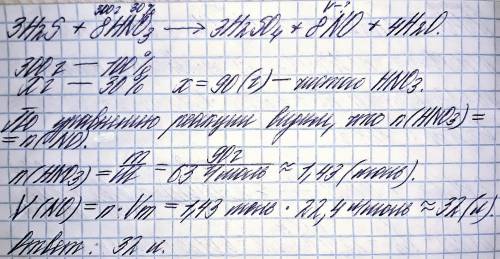 300г 30% V-?
3H₂S + 8HNO₃ → 3H₂SO₄ + 8NO + 4H₂O.
300г — 100%
x г — 30% x = 90 (г) — чистого HNO₃.
По уравнению реакции видим, что n(HNO₃) =
= n(NO).
n(HNO₃) = m/M = 90г/63 г/моль ≈ 1,43 (моль).
V(NO) = n · Vm = 1,43 моль · 22,4 л/моль ≈ 32 (л)
Ответ: 32 л.